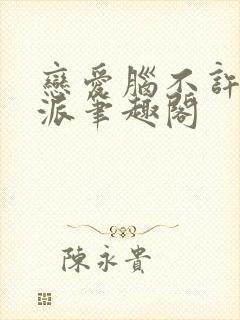 戀愛腦不許
派筆趣閣
陳永貴